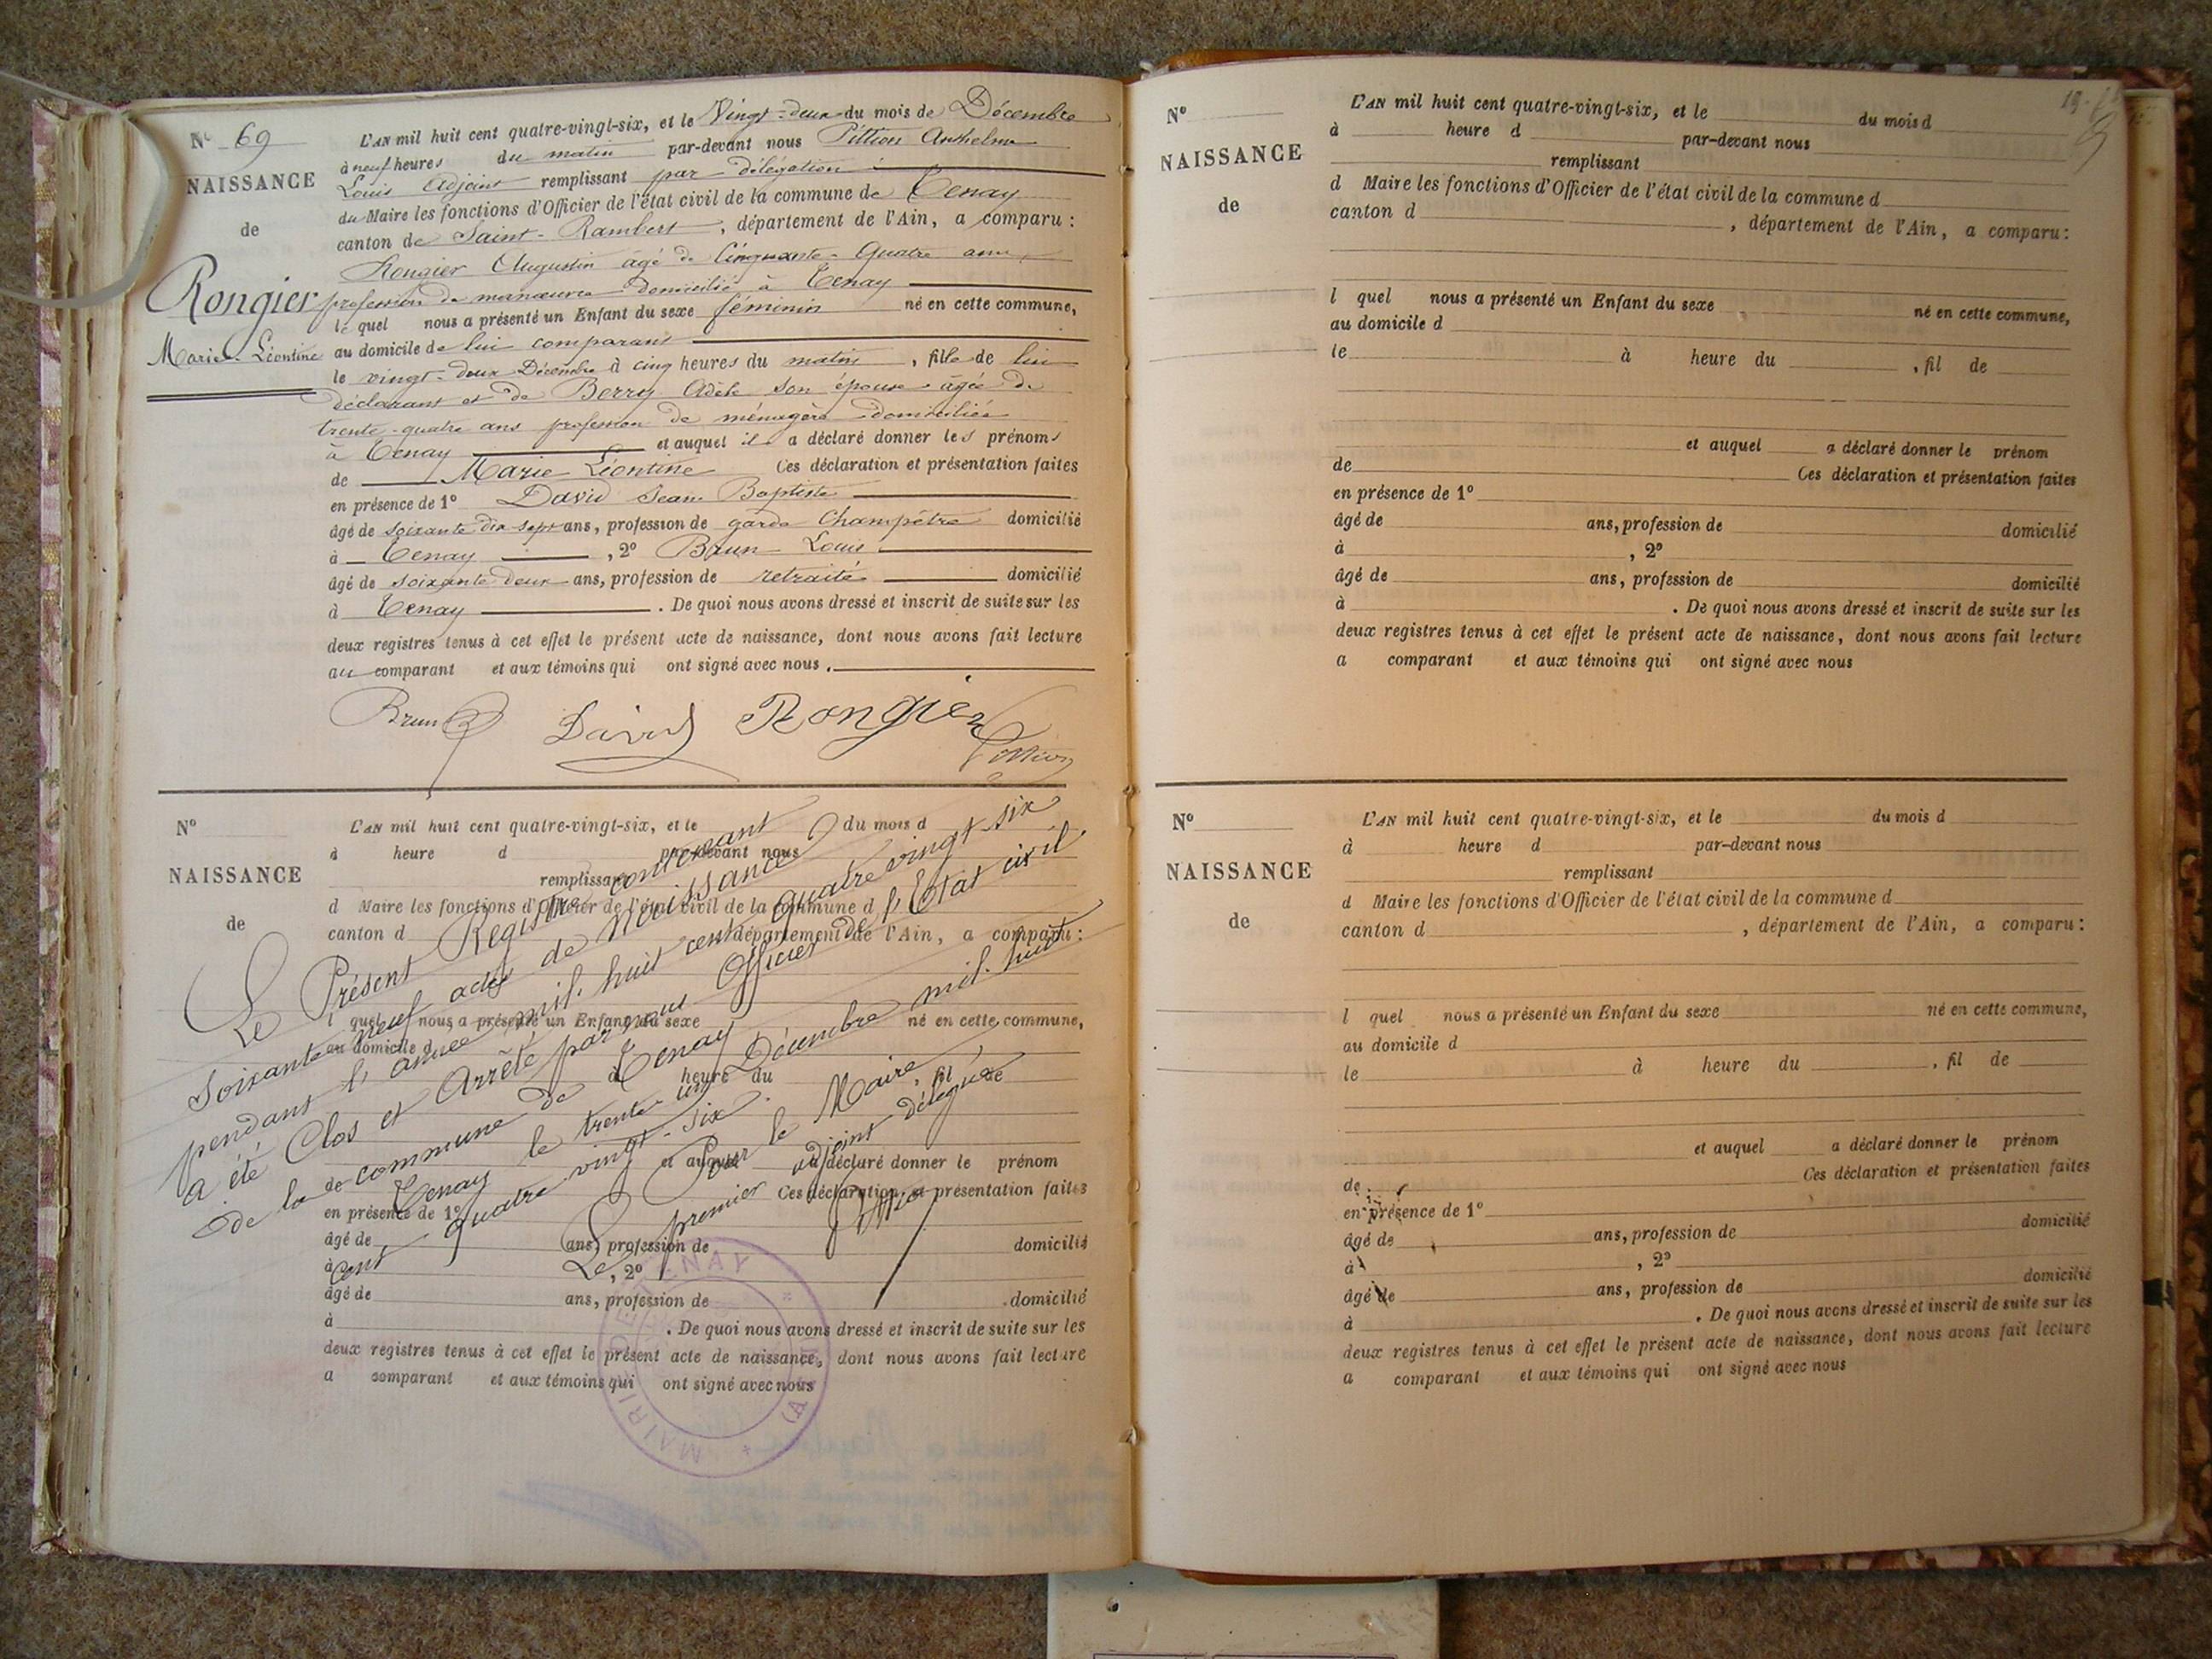 Nº 69
NAISSANCE
de
Rongier
Marie-Léontine
L'AN mil huit cent quatre-vingt-six, et le Vingt-deux du mois de Décembre
à neuf heures du matin par-devant nous Pittion Anthelme
Louis Adjoint remplissant par délégation
du Maire les fonctions d'Officier de l'état civil de la commune de Tenay
canton de Saint-Rambert, département de l'Ain, a comparu :
Rongier Augustin âgé de Cinquante-Quatre ans,
profession de manœuvre domicilié à Tenay
lequel nous a présenté un Enfant du sexe féminin né en cette commune,
au domicile de lui comparant
le vingt-deux Décembre à cinq heures du matin, fille de lui
déclarant et de Berry Adèle son épouse âgée de
trente-quatre ans profession de ménagère domiciliés
à Tenay et auquel il a déclaré donner les prénoms
de Marie Léontine Ces déclaration et présentation faites
en présence de 1º David Jean Baptiste
âgé de soixante dix-sept ans, profession de garde Champêtre domicilié
à Tenay, 2º Brun Louis
âgé de soixante deux ans, profession de retraité domicilié
à Tenay. De quoi nous avons dressé et inscrit de suite sur les
deux registres tenus à cet effet le présent acte de naissance, dont nous avons fait lecture
au comparant et aux témoins qui ont signé avec nous.
Brun David Rongier Pittion
Nº
NAISSANCE
de
L'AN mil huit cent quatre-vingt-six, et le du mois d
à heure d par-devant nous
remplissant
d Maire les fonctions d'Officier de l'état civil de la commune d
canton d , département de l'Ain, a comparu :
l quel nous a présenté un Enfant du sexe né en cette commune,
au domicile d
à heure du , fil de
et auquel a déclaré donner le prénom
de Ces déclaration et présentation faites
en présence de 1º
âgé de ans, profession de domicilié
à , 2º
âgé de ans, profession de domicilié
à . De quoi nous avons dressé et inscrit de suite sur les
deux registres tenus à cet effet le présent acte de naissance, dont nous avons fait lecture
a comparant et aux témoins qui ont signé avec nous
Le Présent Registre contenant
soixante neuf actes de Naissance
pendant l'année mil huit cent quatre vingt six
a été Clos et Arrêté par nous Officier de l'Etat civil
de la commune de Tenay
Tenay le trente un Décembre mil huit
cent quatre vingt-six.
Pour le Maire,
Le premier adjoint délégué
Pittion
MAIRIE DE TENAY (AIN)
Nº
NAISSANCE
de
L'AN mil huit cent quatre-vingt-six, et le du mois d
à heure d par-devant nous
remplissant
d Maire les fonctions d'Officier de l'état civil de la commune d
canton d , département de l'Ain, a comparu :
l quel nous a présenté un Enfant du sexe né en cette commune,
au domicile d
le à heure du , fil de
et auquel a déclaré donner le prénom
de Ces déclaration et présentation faites
en présence de 1º
âgé de ans, profession de domicilié
à , 2º
âgé de ans, profession de domicilié
à . De quoi nous avons dressé et inscrit de suite sur les
deux registres tenus à cet effet le présent acte de naissance, dont nous avons fait lecture
a comparant et aux témoins qui ont signé avec nous
Nº
NAISSANCE
de
L'AN mil huit cent quatre-vingt-six, et le du mois d
à heure d par-devant nous
remplissant
d Maire les fonctions d'Officier de l'état civil de la commune d
canton d , département de l'Ain, a comparu :
l quel nous a présenté un Enfant du sexe né en cette commune,
au domicile d
le à heure du , fil de
et auquel a déclaré donner le prénom
de Ces déclaration et présentation faites
en présence de 1º
âgé de ans, profession de domicilié
à , 2º
âgé de ans, profession de domicilié
à . De quoi nous avons dressé et inscrit de suite sur les
deux registres tenus à cet effet le présent acte de naissance, dont nous avons fait lecture
a comparant et aux témoins qui ont signé avec nous